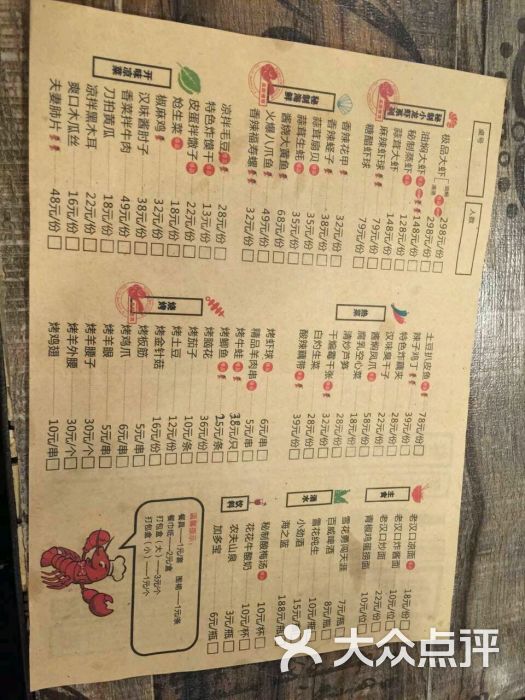 桌号
人数
秘制小龙虾系列
极品大虾 油焖 298元/份
清蒸 298元/份
油焖大虾 148元/份
秘制蒸虾 128元/份
蒜蓉大虾 148元/份
麻辣虾球 79元/份
糖醋虾球 79元/份
秘制海鲜
香辣花甲 32元/份
香辣蛏子 38元/份
蒜蓉扇贝 35元/份
蒜蓉生蚝 35元/份
酱烧大黄鱼 68元/份
火爆八爪鱼 49元/份
香辣福寿螺 32元/份
开味凉菜
凉拌毛豆 28元/份
特色炸馍干 13元/份
皮蛋拌馓子 22元/份
怆生菜 18元/份
椒麻鸡 32元/份
汉味酱肘子 38元/份
香菜拌牛肉 49元/份
刀拍黄瓜 18元/份
凉拌黑木耳 22元/份
爽口木瓜丝 16元/份
夫妻肺片 48元/份
热菜
土豆扒皮鱼 78元/份
辣子鸡丁 39元/份
特色炸藕夹 28元/份
汉味臭干子 22元/份
酱焖凤爪 58元/份
腐乳空心菜 18元/份
清炒芦笋 28元/份
干煸霉干张 32元/份
白灼生菜 28元/份
酸辣藕带 39元/份
烧烤
烤虾球 6元/串
精品羊肉串 5元/串
烤牛蛙 38元/只
烤鲫鱼 25元/条
烤脑花 36元/份
烤茄子 10元/条
烤土豆 12元/份
烤金针菇 16元/份
烤板筋 5元/串
烤鸡爪 6元/串
烤羊眼 5元/串
烤羊腰子 30元/个
烤羊外腰 30元/个
烤鸡翅 10元/串
主食
老汉口凉面 18元/份
老汉口炸酱面 10元/位
老汉口炒面 22元/份
青椒鸡蛋捞面 10元/位
酒水
雪花勇闯天涯 7元/瓶
百威啤酒 8元/瓶
雪花纯生 10元/瓶
小劲酒 15元/瓶
海之蓝 188元/瓶
饮料
秘制酸梅汤 10元/杯
花花牛酸奶 10元/杯
农夫山泉 3元/瓶
加多宝 6元/瓶
温馨提示：
餐具——1元/套 围裙——1元/条
餐巾纸——2元/盒
打包盒（大）——3元/个
打包盒（小）——1元/个
大众点评